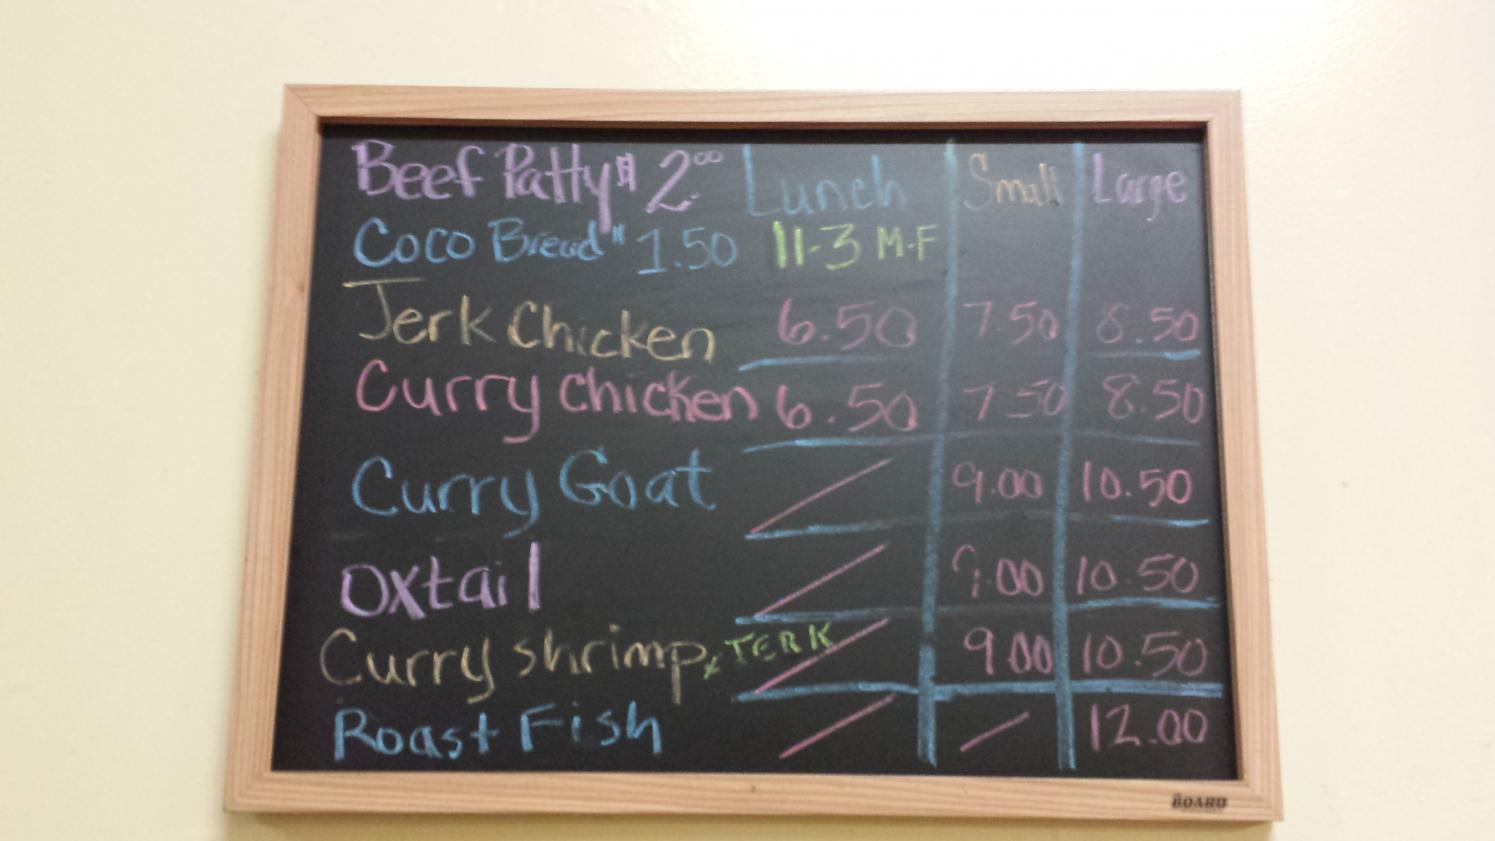 Beef Patty $ 2.00 Lunch Small Large
Coco Bread " 1.50 11-3 M-F
Jerk Chicken 6.50 7.50 8.50
Curry Chicken 6.50 7.50 8.50
Curry Goat 9.00 10.50
Oxtail 9.00 10.50
Curry shrimp x JERK 9.00 10.50
Roast Fish 12.00
BOARD